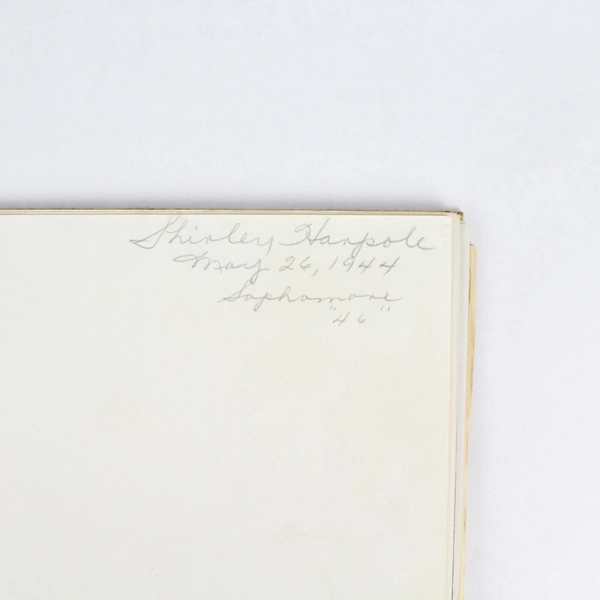 Shirley Harpole
May 26, 1944
Sophomore
"46"